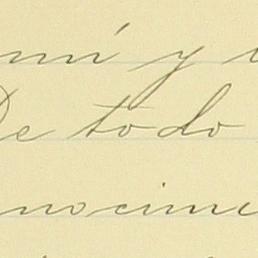 mí y
De todo
nocime